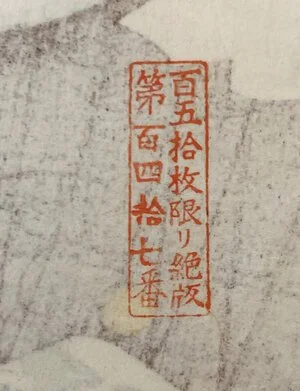 百五拾枚限リ絶版
第百四拾七番